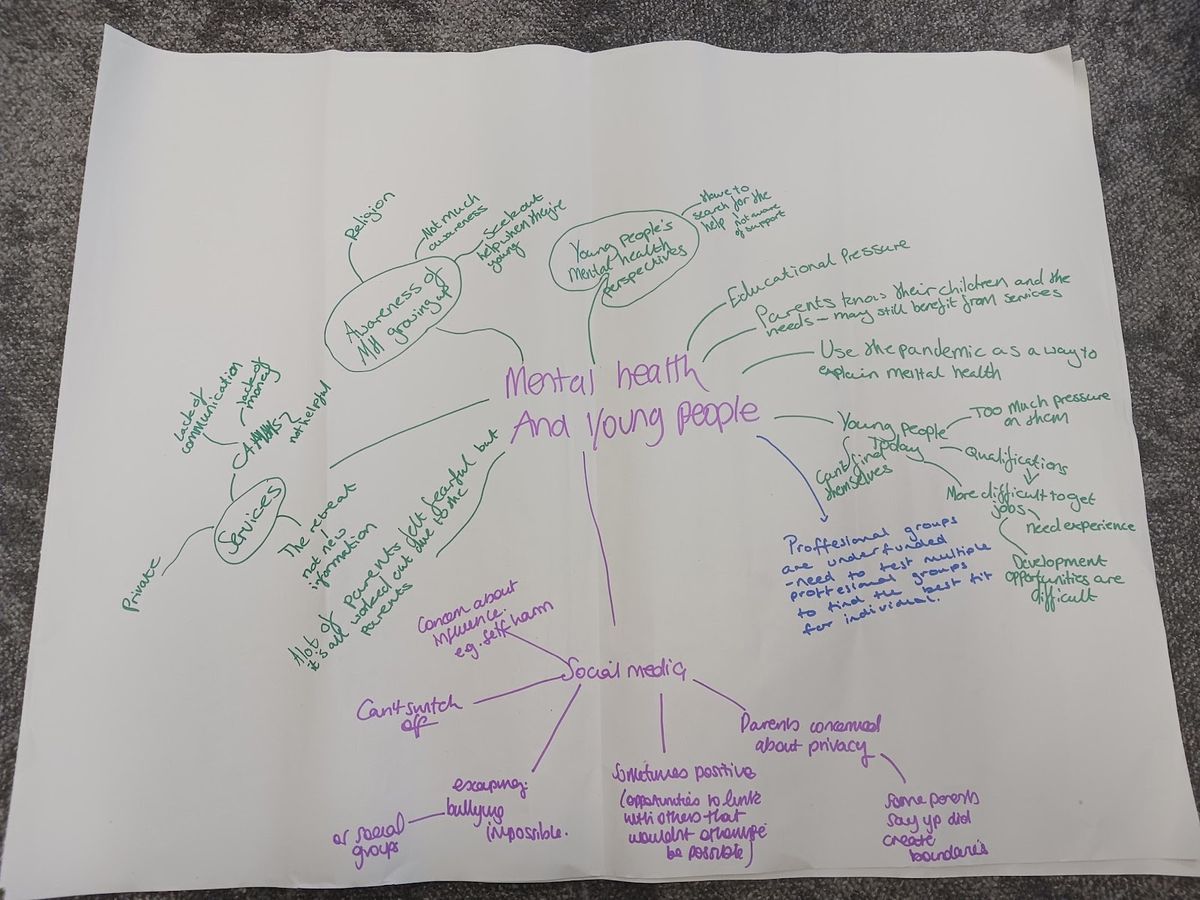 Mental health
And Young people
Religion
Not much
awareness
Seek out
help when they're
young
Awareness of
MH growing up
Young people's
mental health
perspectives
Have to
search for the
help
not aware
of support
Educational Pressure
Parents know their children and the
needs - may still benefit from services
Use the pandemic as a way to
explain mental health
Young people
Today
Too much pressure
on them
Qualifications
can't find
themselves
More difficult to get
jobs
need experience
Development
opportunities are
difficult
Proffesional groups
are underfunded
- need to test multiple
proffesional groups
to find the best fit
for individual.
Lack of
communication
Lack of
money
CAMHS
not helpful
Services
Private
The retreat
not new
information
Alot of parents felt fearful but
it's all worked out due to the
parents
Social media
Concern about
influence.
e.g. self harm
Can't switch
off
escaping:
bullying
impossible.
or social
groups
Sometimes positive
(opportunities to link
with others that
wouldn't otherwise
be possible)
Parents concerned
about privacy
some parents
say yp did
create
boundaries